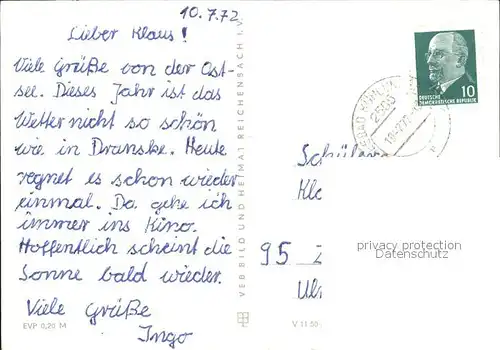 10.7.72
Lieber Klaus!
Viele Grüße von der Ost-
see. Dieses Jahr ist das
Wetter nicht so schön
wie in Dranske. Heute
regnet es schon wieder
einmal. Da gehe ich
immer ins Kino.
Hoffentlich scheint die
Sonne bald wieder.
Viele Grüße
Ingo
EVP 0,20 M
VEB BILD UND HEIMAT REICHENBACH I. V.
V 11 50
10
DEUTSCHE
DEMOKRATISCHE REPUBLIK
Schüler
Kl
95
privacy protection
Datenschutz